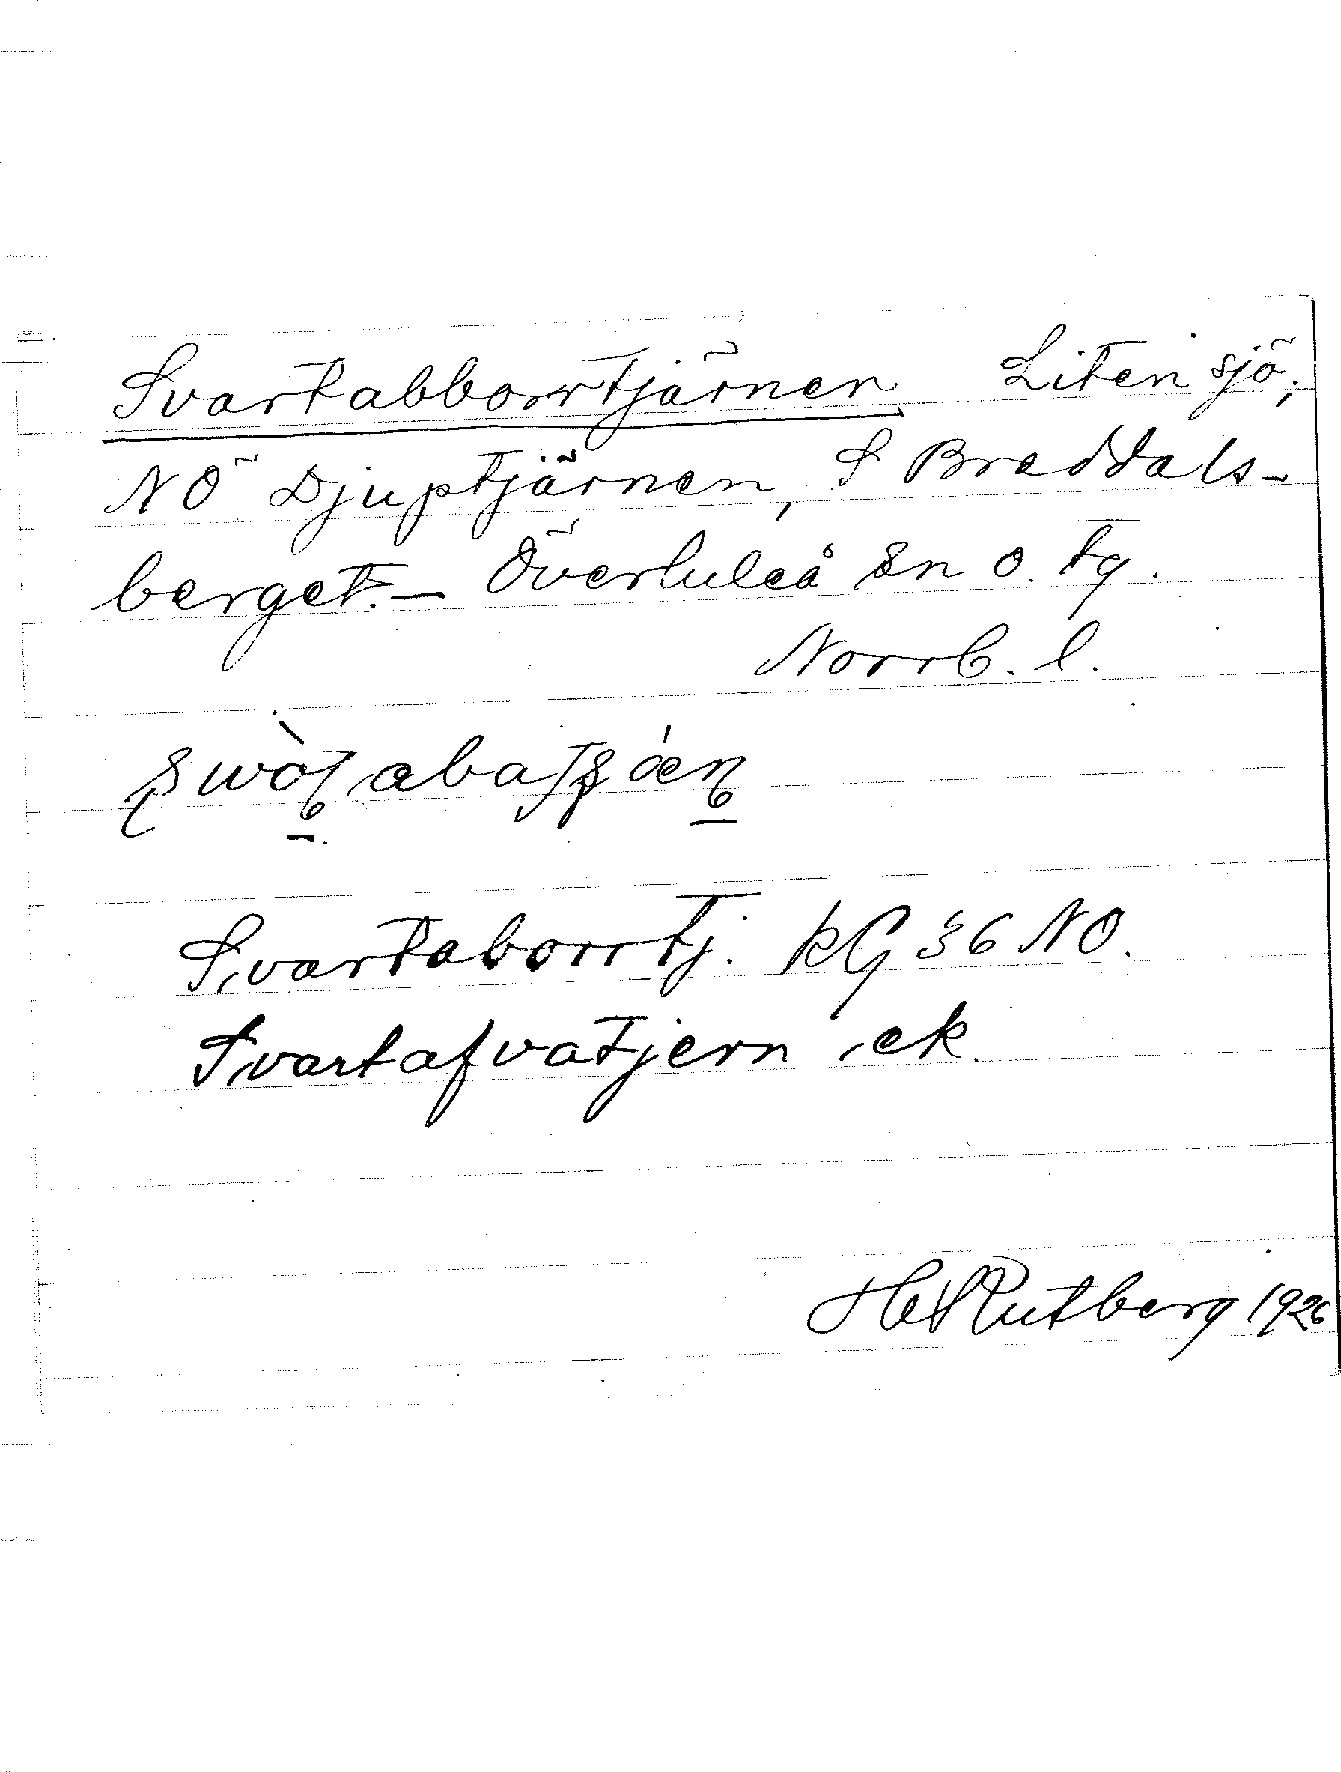 Svartabborrtjärnen Liten sjö,
NÖ Djuptjärnen, S Breddals-
berget. – Överluleå sn o. tg.
Norrb. l.
Svartaborrtj. KG 36 NO.
Svartafvatjern , ek.
H Rutberg 1926